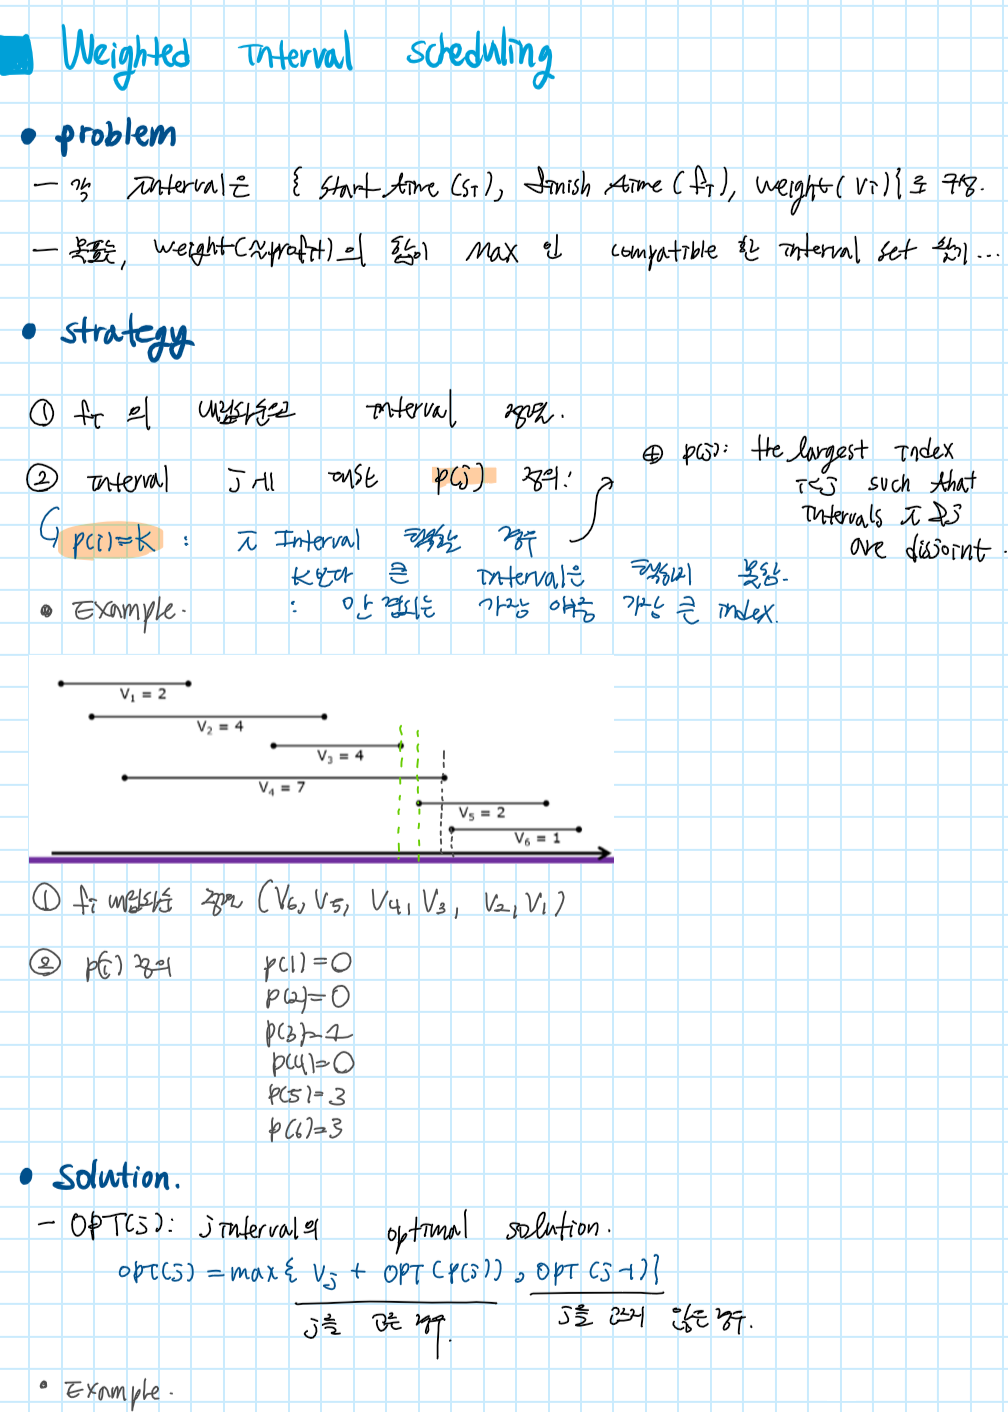 Weighted Interval scheduling
• problem
- 각 Interval은 { start time (si), finish time (fi), weight (vi) } 로 구성.
- 목표는, weight(≈profit)의 합이 max 인 compatible 한 interval set 찾기...
• strategy
① fi 의 내림차순으로 interval 정렬.
② interval j에 대해 p(j) 정의:
⊕ p(j): the largest index
i<j such that
intervals i 와 j
are disjoint.
p(i)=k : i Interval 선택하는 경우
k보다 큰 interval은 선택하지 못함.
: 안 겹치는 가장 index.
가장 큰
• Example.
V₁ = 2
V₂ = 4
V₃ = 4
V₄ = 7
V₅ = 2
V₆ = 1
① fi 내림차순 정렬 (V6, V5, V4, V3, V2, V1)
② p(i) 정의 p(1)=0
p(2)=0
p(3)=1
p(4)=0
p(5)=3
p(6)=3
• Solution.
- OPT(j): j interval의 optimal solution.
opt(j) = max{ Vj + OPT(p(j)), OPT(j-1)}
j를 고른 경우. j를 고르지 않은 경우.
• Example.